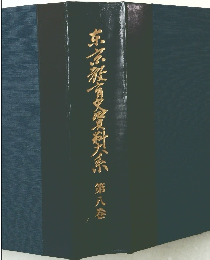 東京教育史資料大系
第八巻